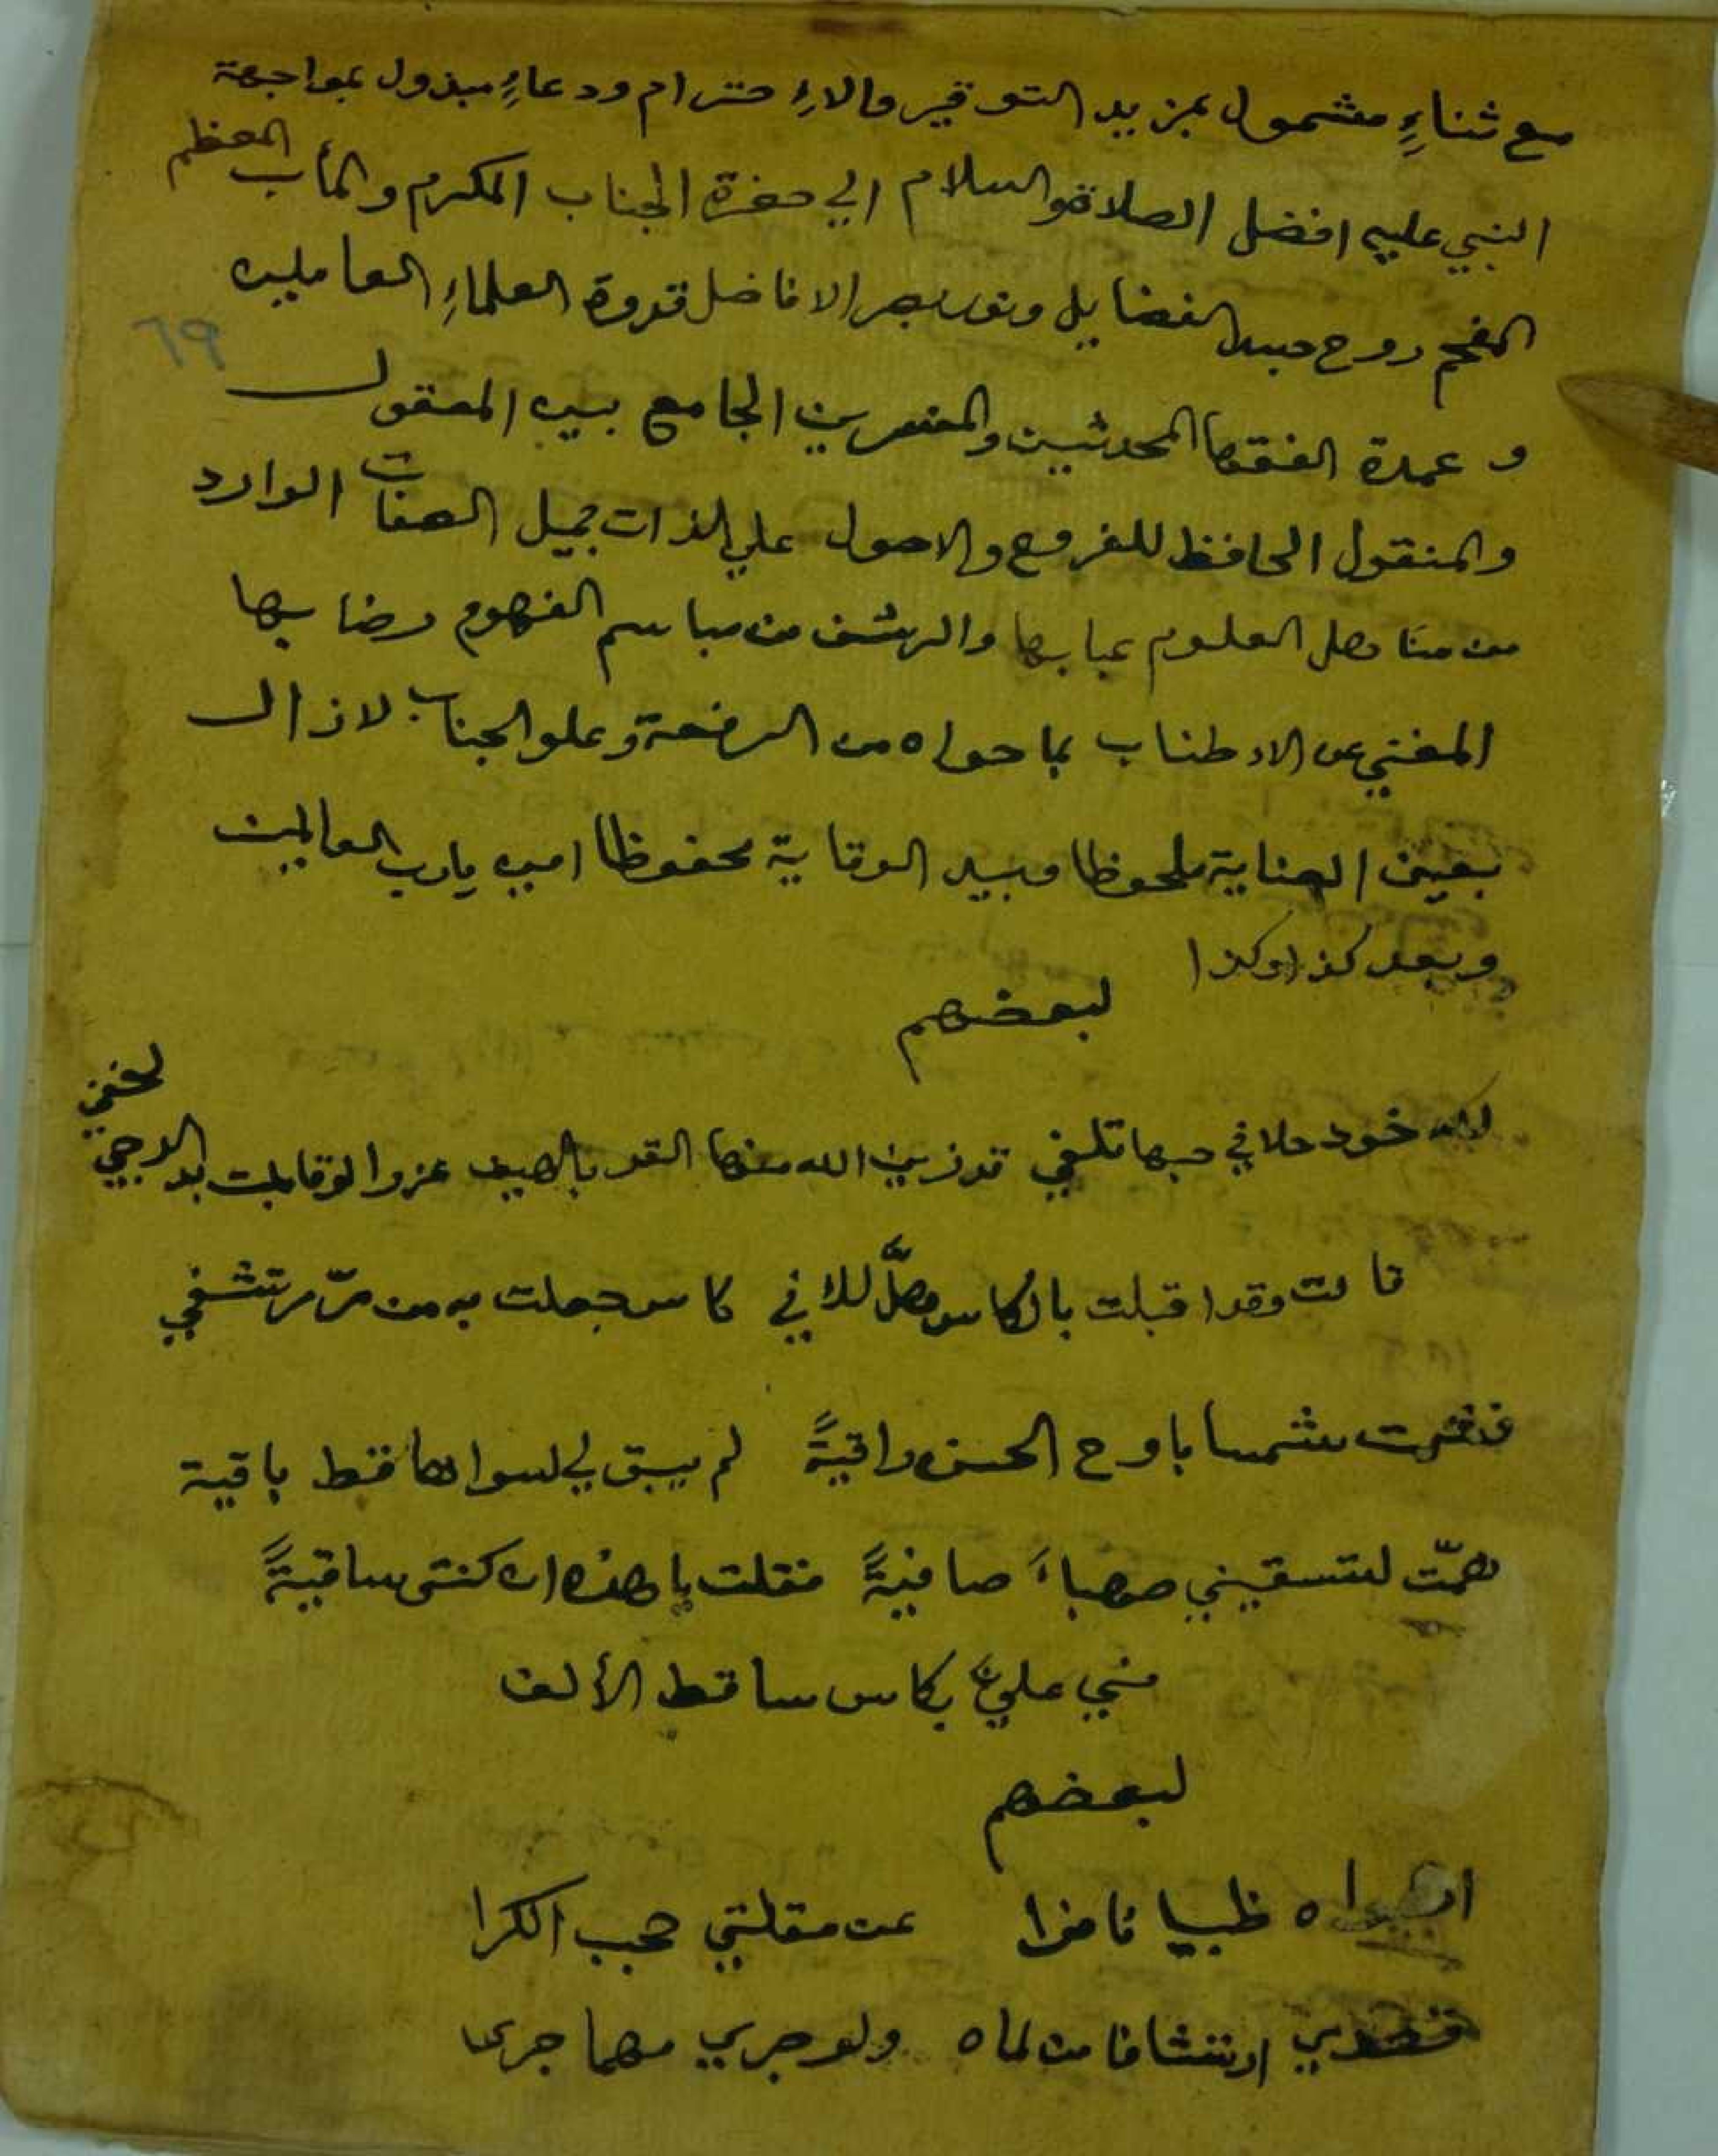 مع ثناءٍ مشمول بمزيد التوقير والاحترام ودعاءٍ مبذول بمواجهة
النبي عليه افضل الصلاة والسلام الي حضرة الجناب المكرم والمأب المعظم
المفخم روح جسد الفضايل ونور بصر الافاضل قدوة العلماءِ العاملين
٦٩
و عمدة الفقها المحدثين والمفسرين الجامع بين المعقول
والمنقول الحافظ للفروع والاصول علي الذات جميل الصفات الوارد
من مناهل العلوم عبابها والرشف من مباسم الفهوم رضابها
المغني عن الاطناب بما حواه من الرفعة وعلو الجناب لازال
بعين العناية ملحوظا وبيد الوقاية محفوظا امين يارب العالمين
وبعد كذا وكذا
لبعضهم
لله خود حلا في حبها تلفي قد زين الله منها القد بالهيف عزوا لو قابلت بدر الدجي لخفي
قالت وقد اقبلت بالكاس هلّا للاني كاس جعلت به من مرّ مرتشفي
شمسا باوج الحسن راقيةً لم يبق لي لسواها قط باقية
همّت لتسقيني صهباءَ صافيةً فقلت يا هذه ان كنتي ساقيةً
مني عليّ بكاس ساقط الألف
لبعضهم
ظبيا نافرا عن مقلتي حجب الكرا
قصدي ارتشافا من لماه ولو جري مهما جرى